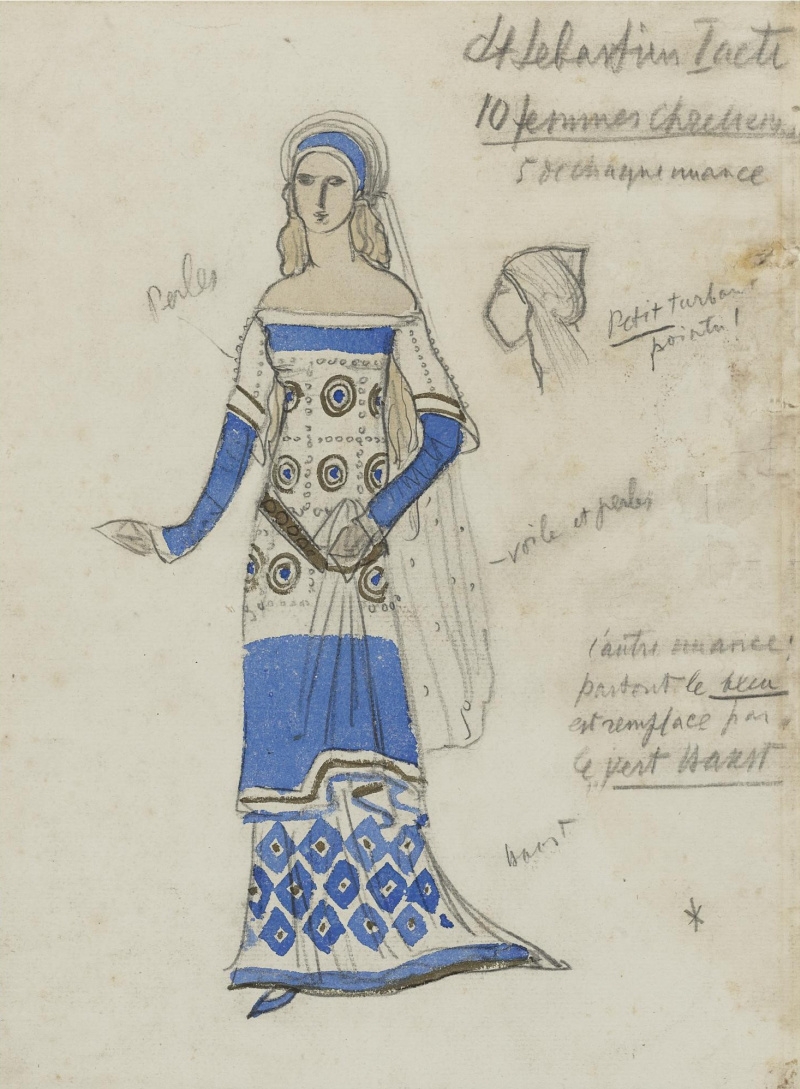 St Sebastien I acte
10 femmes chretiennes
5 de chaque nuance
Perles
Petit turban
pointu!
- voile et perles
l'autre nuance:
partout le bleu
est remplacé par
le vert